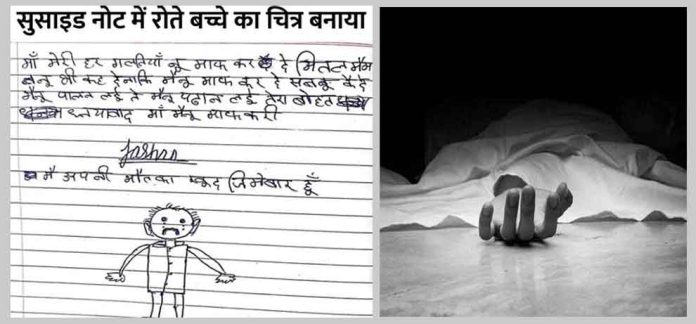 सुसाइड नोट में रोते बच्चे का चित्र बनाया
माँ मेरी हर गलतियाँ नू माफ कर दे मितल मैम
नू भी कह देना कि मैनू माफ कर दे
मैनू पालन लई ते मैनू पढ़ान लई तेरा बोहत
धन्यावाद माँ मैनू माफ करी
Jashan
मै अपनी मौत का खुद जिमेबार हूँ